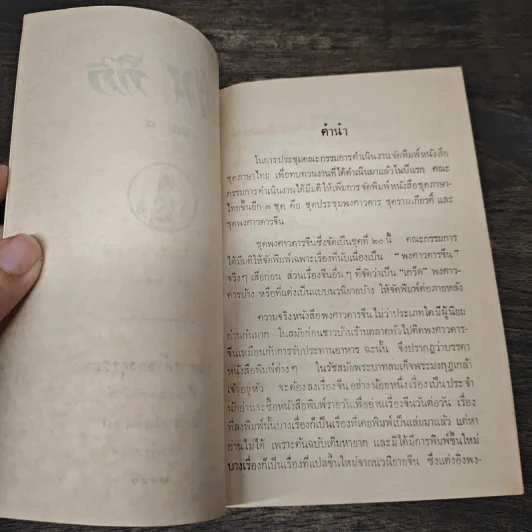 คำนำ
ในการประชุมคณะกรรมการดำเนินงานจัดพิมพ์หนังสือ
ชุดภาษาไทย เพื่อทบทวนงานที่ได้ดำเนินมาแล้วในปีแรก คณะ
กรรมการดำเนินงานได้มีมติให้เพิ่มการจัดพิมพ์หนังสือชุดภาษา-
ไทยขึ้นอีก ๓ ชุด คือ ชุดประชุมพงศาวดาร ชุดรามเกียรติ์ และ
ชุดพงศาวดารจีน
ชุดพงศาวดารจีนซึ่งจัดเป็นชุดที่ ๒๐ นี้ คณะกรรมการ
ได้มีมติให้จัดพิมพ์เฉพาะเรื่องที่นับเนื่องเป็น “พงศาวดารจีน”
จริงๆ เสียก่อน ส่วนเรื่องจีนอื่นๆ ที่จัดว่าเป็น “เกร็ด” พงศาว-
ดารบ้าง หรือที่แต่งเป็นแบบนวนิยายบ้าง ให้จัดพิมพ์ต่อภายหลัง
ความจริงหนังสือพงศาวดารจีน ไม่ว่าประเภทใดมีผู้นิยม
อ่านกันมาก ในสมัยก่อนชาวบ้านร้านตลาดทั่วไปติดพงศาวดาร-
จีนเหมือนกับการรับประทานอาหาร ฉะนั้น จึงปรากฏว่าบรรดา
หนังสือพิมพ์ต่างๆ ในรัชสมัยพระบาทสมเด็จพระมงกุฎเกล้า
เจ้าอยู่หัว จะต้องลงเรื่องจีนอย่างน้อยหนึ่งเรื่องเป็นประจำ
นักอ่านจะซื้อหนังสือพิมพ์รายวันเพื่ออ่านเรื่องจีนวันต่อวัน เรื่อง
ที่ลงพิมพ์นั้นบางเรื่องก็เป็นเรื่องที่เคยพิมพ์เป็นเล่มมาแล้ว แต่หา
อ่านไม่ได้ เพราะต้นฉบับเดิมหายาก และมิได้มีการพิมพ์ขึ้นใหม่
บางเรื่องก็เป็นเรื่องที่แปลขึ้นใหม่จากนวนิยายจีน ซึ่งแต่งอิงพง-